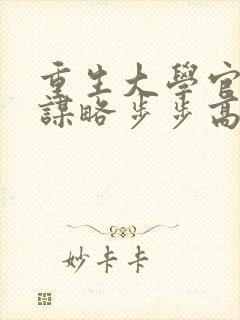 重生大學官
謀略步步高
妙卡卡